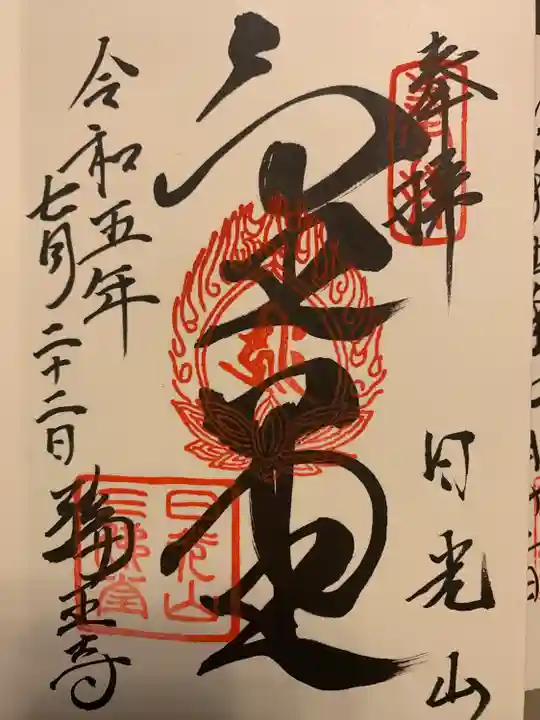 奉拝
日光山
金堂
令和五年
七月二十二日
輪王寺
日光山
三佛堂